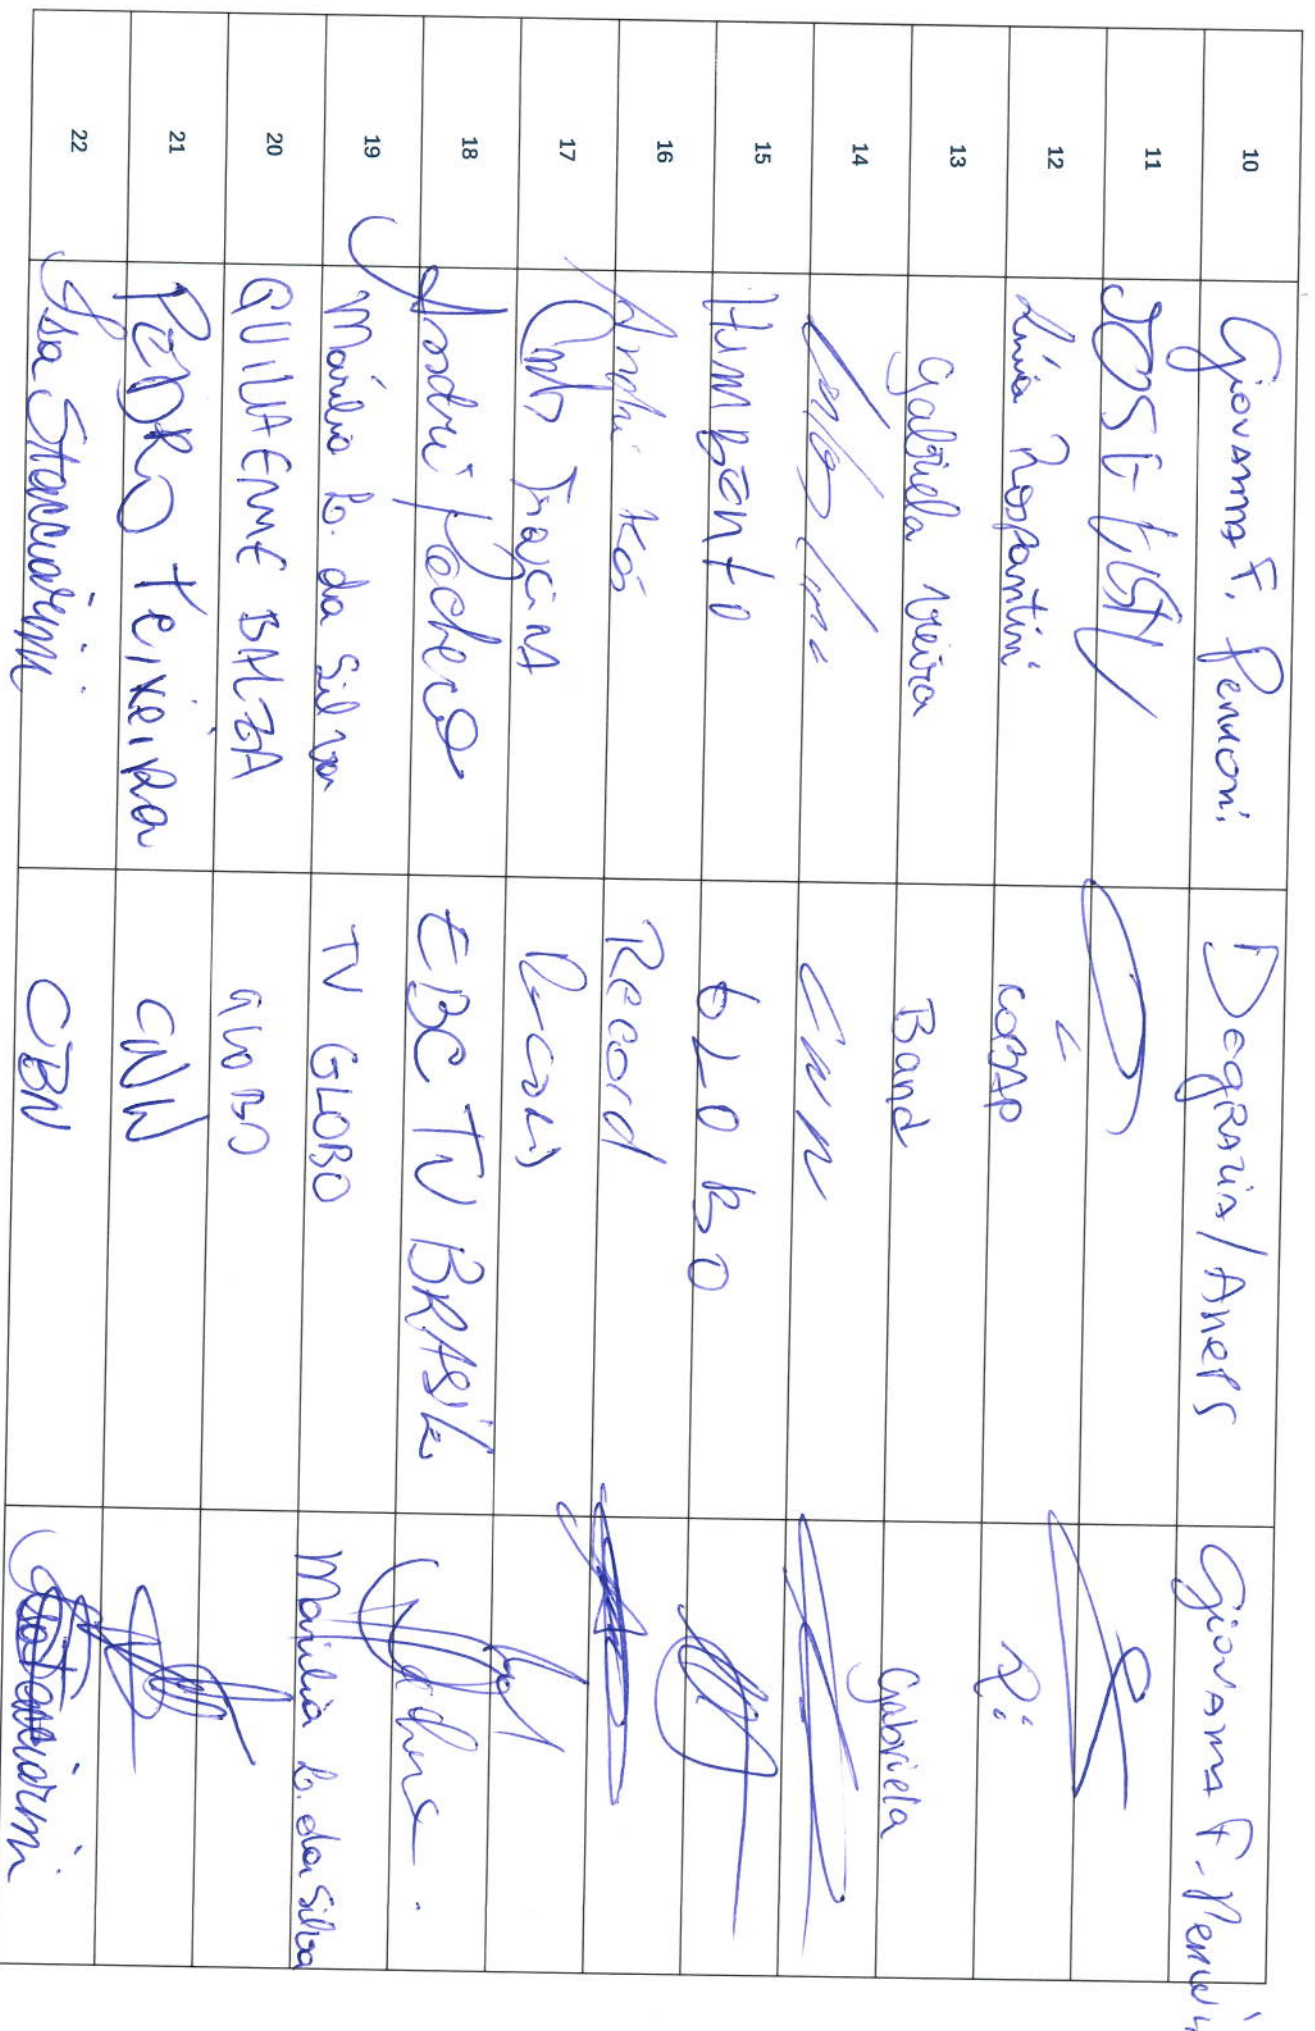 10 Giovanna F. Pennoni Degrazia/Aneps Giovanna F. Penno
11 JOSE
12 Lívia Rospantini COBAP
13 Gabriela Vieira Band Gabriela
14 CNN
15 HUMBERTO GLOBO
16 Record
17 Record
18 André Pacheco EBC TV BRASIL
19 Marília B. da Silva TV GLOBO Marília B. da Silva
20 GUILHERME BALZA GLOBO
21 PEDRO TEIXEIRA CNN
22 Isa Stacciarini CBN Isa Stacciarini